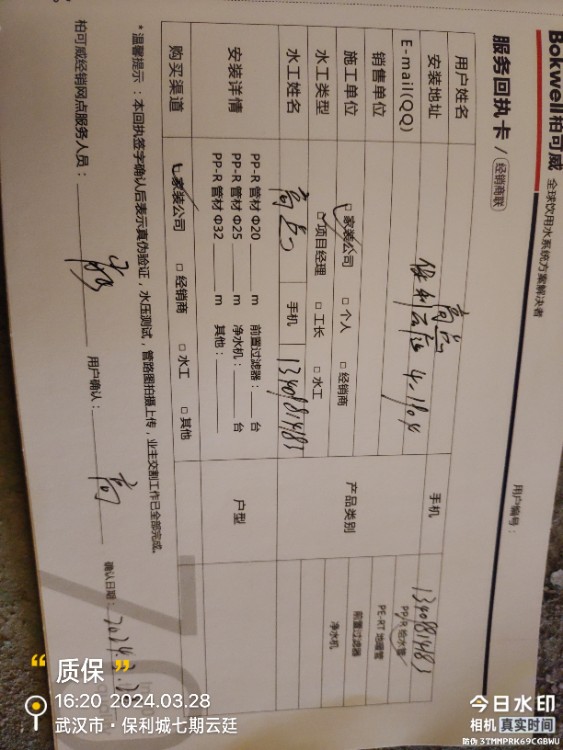 Bokwell柏可威 全球饮用水系统方案解决者
服务回执卡 / 经销商联
用户编号：
用户姓名 高 手机 13408814183
安装地址 保利云庭 4-1904
E-mail(QQ) 产品类别 PP-R 给水管
PE-RT 地暖管
前置过滤器
净水机
销售单位
施工单位 家装公司 □ 个人 □ 经销商
水工类型 项目经理 □ 工长 □ 水工
水工姓名 高 手机 13408814183
安装详情 PP-R 管材 Φ20 m 前置过滤器： 台 户型
PP-R 管材 Φ25 m 净水机： 台
PP-R 管材 Φ32 m 其他：
购买渠道 家装公司 □ 经销商 □ 水工 □ 其他
* 温馨提示 ：本回执签字确认后表示真伪验证，水压测试，管路图拍摄上传，业主交割工作已全部完成。
柏可威经销网点服务人员： 用户确认： 高 确认日期：2024.
“质保”
16:20 2024.03.28
武汉市 · 保利城七期云廷
今日水印
相机 真实时间
防伪 3TMMPRK69CGBWU